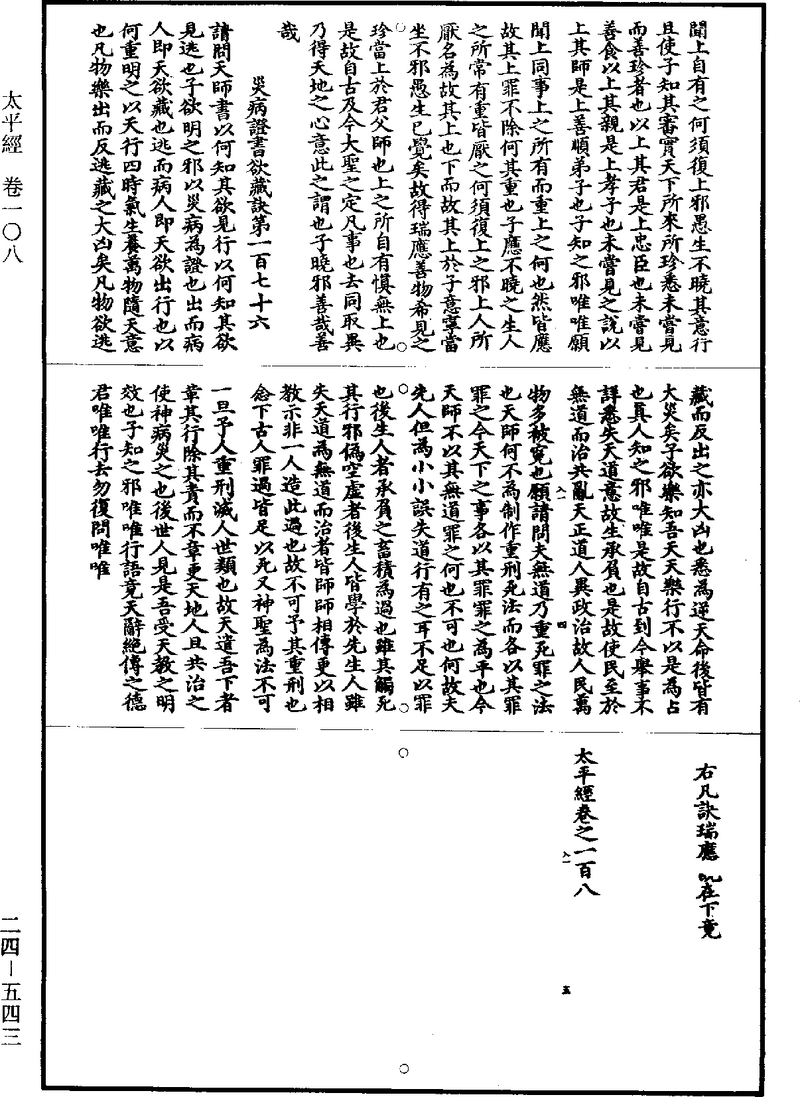 聞上自有之何須復上邪愚生不曉其意行
且使子知其審實天下所來所珍悉未嘗見
而善珍者也以上其君是上忠臣也未嘗見
善食以上其親是上孝子也未嘗見之說以
上其師是上善順弟子也子知之邪唯唯願
聞上同事上之所有而重上之何也然皆應
故其上罪不除何其重也子應不曉之生人
之所常有重皆厭之何須復上之邪上人所
厭名為故其上也下而故其上於子意寧當
坐不邪愚生已覺矣故得瑞應善物希見之
珍當上於君父師也上之所自有慎無上也
是故自古及今大聖之定凡事也去同取異
乃得天地之心意此之謂也子曉邪善哉善
哉
災病證書欲藏訣第一百七十六
請問天師書以何知其欲見行以何知其欲
見逃也子欲明之邪以災病為證也出而病
人即天欲藏也逃而病人即天欲出行也以
何重明之以天行四時氣生養萬物隨天意
也凡物樂出而反逃藏之大凶矣凡物欲逃
藏而反出之亦大凶也悉為逆天命後皆有
大災矣子欲樂知吾天天樂行不以是為占
也真人知之邪唯唯是故自古到今舉事不
詳悉失天道意故生承負也是故使民至於
無道而治共亂天正道人異政治故人民萬
物多被冤也願請問夫無道乃重死罪之法
也天師何不為制作重刑死法而各以其罪
罪之今天下之事各以其罪罪之為平也今
天師不以其無道罪之何也不可也何故夫
先人但為小小誤失道行有之耳不足以罪
也後生人者承負之畜積為過也雖其觸死
其行邪偽空虛者後生人皆學於先生人雖
失天道為無道而治者皆師師相傳更以相
教示非一人造此過也故不可予其重刑也
念下古人罪過皆足以死又神聖為法不可
一旦予人重刑滅人世類也故天遣吾下者
章其行除其責而不章更天地人且共治之
使神病災之也後世人見是吾受天教之明
效也子知之邪唯唯行語竟天辭絕傳之德
君唯唯行去勿復問唯唯
右凡訣瑞應 在下竟
太平經卷之一百八
太平經 卷一〇八
二四—五四三